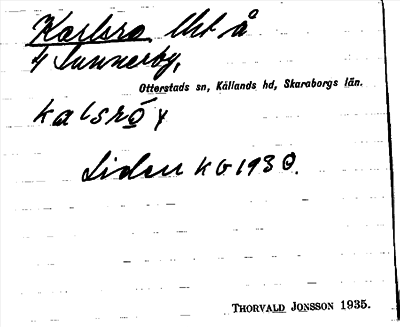 Karlsro Uht å
4 Sunnerby,
Otterstads sn, Kållands hd, Skaraborgs län.
kalsrọ́ y
Liden KG 1930.
THORVALD JONSSON 1935.